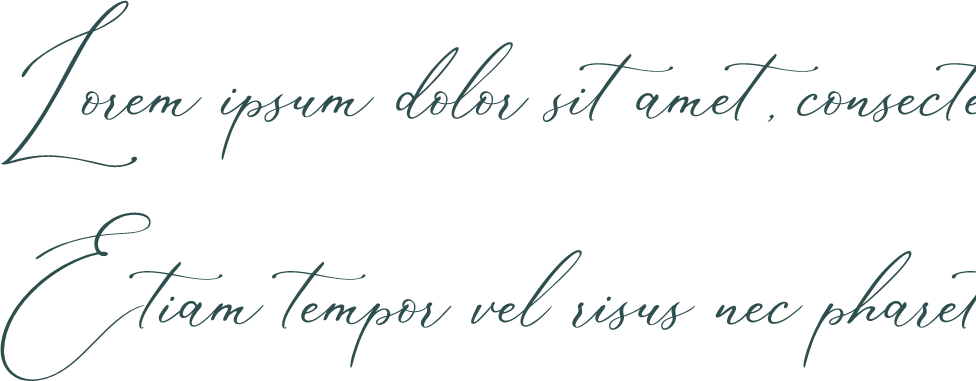 Lorem ipsum dolor sit amet, consecte
Etiam tempor vel risus nec pharet